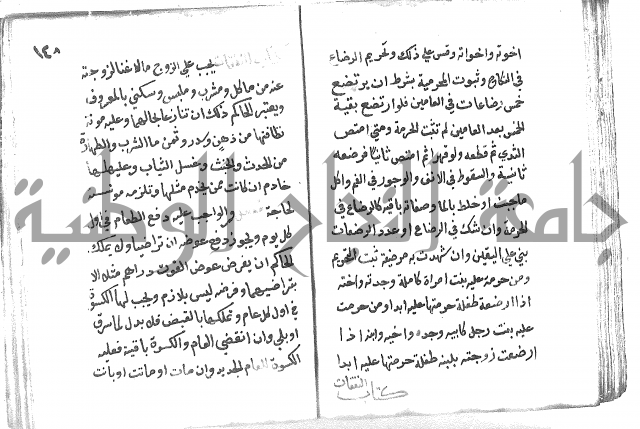 اخوته واخواته وقس على ذلك وتحريم الرضاع
في النكاح وثبوت المحرمية بشرط ان يرتضع
خمس رضاعات في العامين فلو ارتضع بقية
الخمس بعد العامين لم تثبت الحرمة ومتى امتص
الثدي ثم قطعه ولو قهرا ثم امتص ثانيا فرضعة
ثانية والسعوط في الانف والوجور في الفم واكل
ما جبن او خلط بالماء وصفاته باقية كالرضاع في
الحرمة وان شك في الرضاع او عدد الرضعات
بني على اليقين وان شهدت به مرضية ثبت التحريم
ومن حرمت عليه بنت امراة كاملة وجدته واخته
اذا ارضعت طفلة حرمتها عليه ابدا ومن حرمت
عليه بنت رجل كابيه وجده واخيه وابنه اذا
ارضعت زوجته بلبنه طفلة حرمتها عليه ابدا
كتاب النفقات
١٢٨
كتاب النفقات
يجب على الزوج ما لا غنا لزوجته
عنه من ماكل ومشرب وملبس وسكنى بالمعروف
ويعتبر الحاكم ذلك ان تنازعا بحالهما وعليه مونة
نظافتها من دهن وسدر وثمن ما الشرب والطهارة
من الحدث والخبث وغسل الثياب وعليه لها
خادم ان كانت ممن يخدم مثلها وتلزمه مونسة
لحاجة والواجب عليه دفع الطعام في اول
كل يوم ويجوز دفع عوضه ان تراضيا ولا يملك
الحاكم ان يفرض عوض القوت دراهم مثلا الا
بتراضيهما وفرضه ليس بلازم ويجب لها الكسوة
في اول كل عام وتملكها بالقبض فلا بدل لما سرق
او بلي وان انقضى العام والكسوة باقية فعليه
الكسوة للعام الجديد وان مات او ماتت او بانت
جامعة النجاح الوطنية